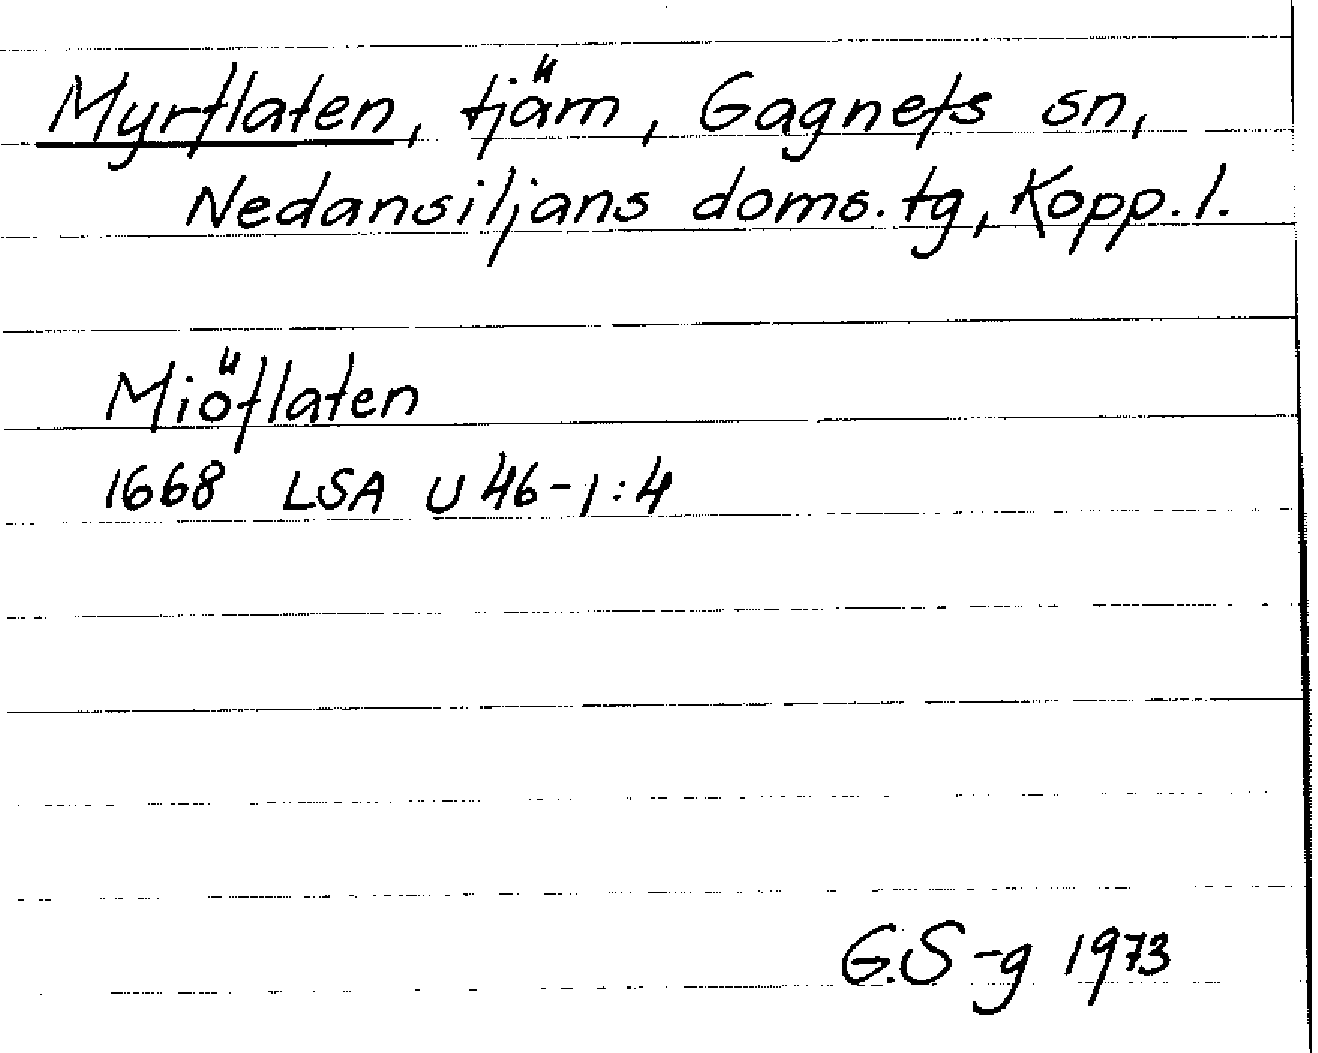 Myrflaten, tjärn, Gagnefs sn,
Nedansiljans doms. tg, Kopp. l.
Miöflaten
1668 LSA U 46-1:4
G.S-g 1973